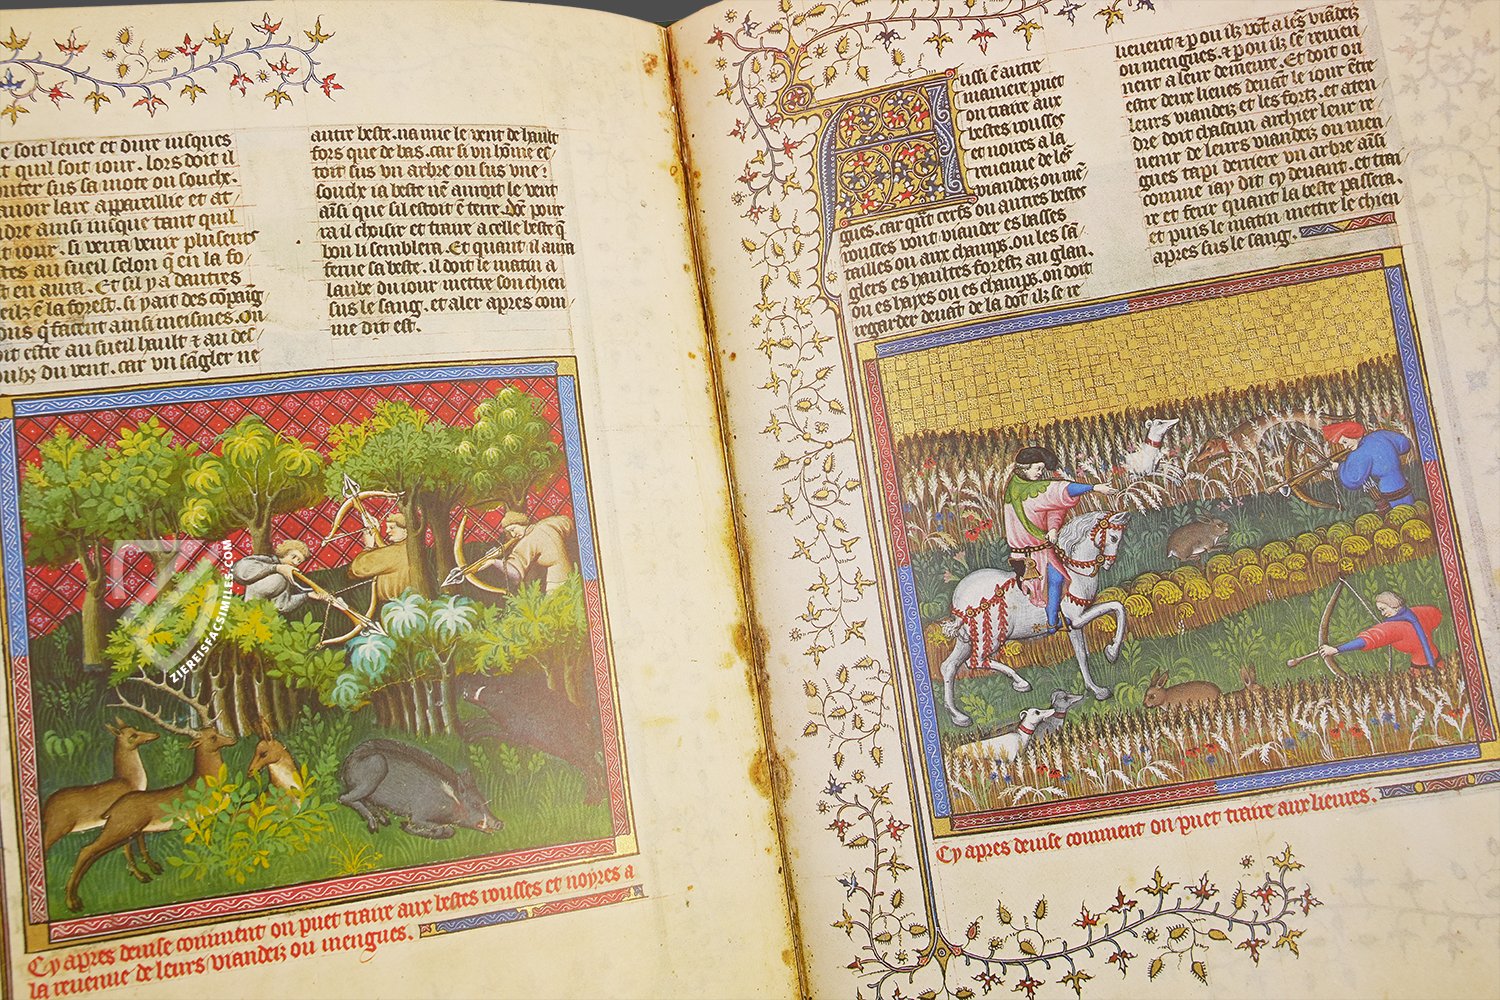 e soit leuee et dure iusques
t quil soit iour. lors doit il
onter sus sa mote ou souche.
auoir larc appareillie et at-
ndre ainsi iusque tant quil
t iour. si verra venir plusieurs
tes au sueil selon q̃ en la fo-
st en aura. Et sil y a dautres
eilz ẽ la forest. si yait des cõpaig
ons q̃ facent ainsi meismes. On
oit estre au sueil hault ⁊ au des-
oubz du vent. car vn sãgler ne
autre beste. na mie le vent de hault
fors que de bas. car si vn hõme es-
toit sus vn arbre ou sus vne
souche ia beste nẽ auroit le vent
aĩsi que sil estoit ẽ terre. dõt pour
ra il choisir et traire a celle beste q̃
bon li semblera. Et quant il aura
ferue sa beste. il doit le matin a
laube du iour mettre son chien
sus le sang. et aler apres com
me dit est.
Cy apres deuise comment on puet traire aux bestes rousses et noyres a
la reuenue de leurs viandeiz ou mengues.
Aussi ẽ autre
maniere puet
on traire aux
bestes rousses
et noires a la
reuenue de les
viandeiz ou mẽ
gues. car qũt cerfs ou autres bestes
rousses vont viander es basses
tailles ou aux champs. ou les sã
glers es haultes forestz au glan.
ou es hayes ou es champs. on doit
regarder deuãt de la dõt ilz se re
lieuent ⁊ p ou ilz võt a les viãdeiz
ou mengues. ⁊ p ou ilz se reuien
nent a leur demeure. Et doit on
estre deux lieues deuãt le iour ẽtre
leurs viandeiz et les fortz. et aten
dre doit chascun archier leur re
uenir de leurs viandeiz ou men
gues tapi derriere vn arbre aĩsi
comme iay dit cy deuant. et trai
re et ferir quant la beste passera.
et puis le matin mettre le chien
apres sus le sang.
Cy apres deuise comment on puet traire aux lieures.
ZIEREISFACSIMILES.COM